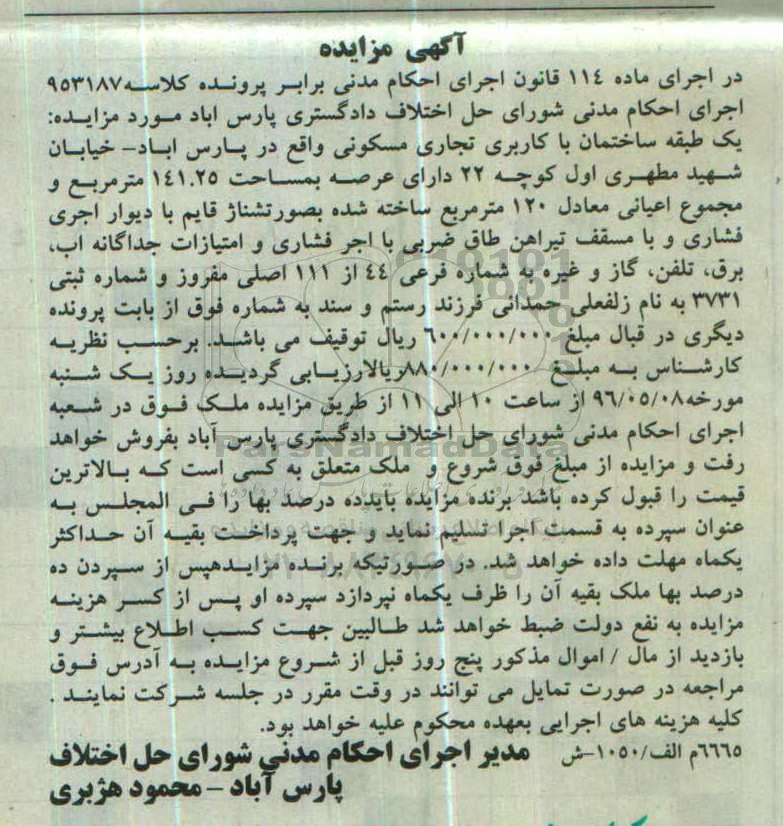 آگهی مزایده
در اجرای ماده ۱۱٤ قانون اجرای احکام مدنی برابر پرونده کلاسه۹۵۳۱۸۷
اجرای احکام مدنی شورای حل اختلاف دادگستری پارس اباد مورد مزایده:
یک طبقه ساختمان با کاربری تجاری مسکونی واقع در پارس اباد- خیابان
شهید مطهری اول کوچه ۲۲ دارای عرصه بمساحت ۱٤۱.۲۵ مترمربع و
مجموع اعیانی معادل ۱۲۰ مترمربع ساخته شده بصورتشناژ قایم با دیوار اجری
فشاری و با مسقف تیراهن طاق ضربی با اجر فشاری و امتیازات جداگانه اب،
برق، تلفن، گاز و غیره به شماره فرعی ٤٤ از ۱۱۱ اصلی مفروز و شماره ثبتی
۳۷۳۱ به نام زلفعلی حمدانی فرزند رستم و سند به شماره فوق از بابت پرونده
دیگری در قبال مبلغ ٦۰۰/۰۰۰/۰۰۰ ریال توقیف می باشد. برحسب نظریه
کارشناس به مبلغ ۸۸۰/۰۰۰/۰۰۰ریالارزیابی گردیده روز یک شنبه
مورخه۹٦/۰۵/۰۸ از ساعت ۱۰ الی ۱۱ از طریق مزایده ملک فوق در شعبه
اجرای احکام مدنی شورای حل اختلاف دادگستری پارس آباد بفروش خواهد
رفت و مزایده از مبلغ فوق شروع و ملک متعلق به کسی است که بالاترین
قیمت را قبول کرده باشد برنده مزایده بایدده درصد بها را فی المجلس به
عنوان سپرده به قسمت اجرا تسلیم نماید و جهت پرداخت بقیه آن حداکثر
یکماه مهلت داده خواهد شد. در صورتیکه برنده مزایدهپس از سپردن ده
درصد بها ملک بقیه آن را ظرف یکماه نپردازد سپرده او پس از کسر هزینه
مزایده به نفع دولت ضبط خواهد شد طالبین جهت کسب اطلاع بیشتر و
بازدید از مال / اموال مذکور پنج روز قبل از شروع مزایده به آدرس فوق
مراجعه در صورت تمایل می توانند در وقت مقرر در جلسه شرکت نمایند .
کلیه هزینه های اجرایی بعهده محکوم علیه خواهد بود.
٦٦٦۵م الف/۱۰۵۰-ش مدیر اجرای احکام مدنی شورای حل اختلاف
پارس آباد - محمود هژبری
ParsNamadData